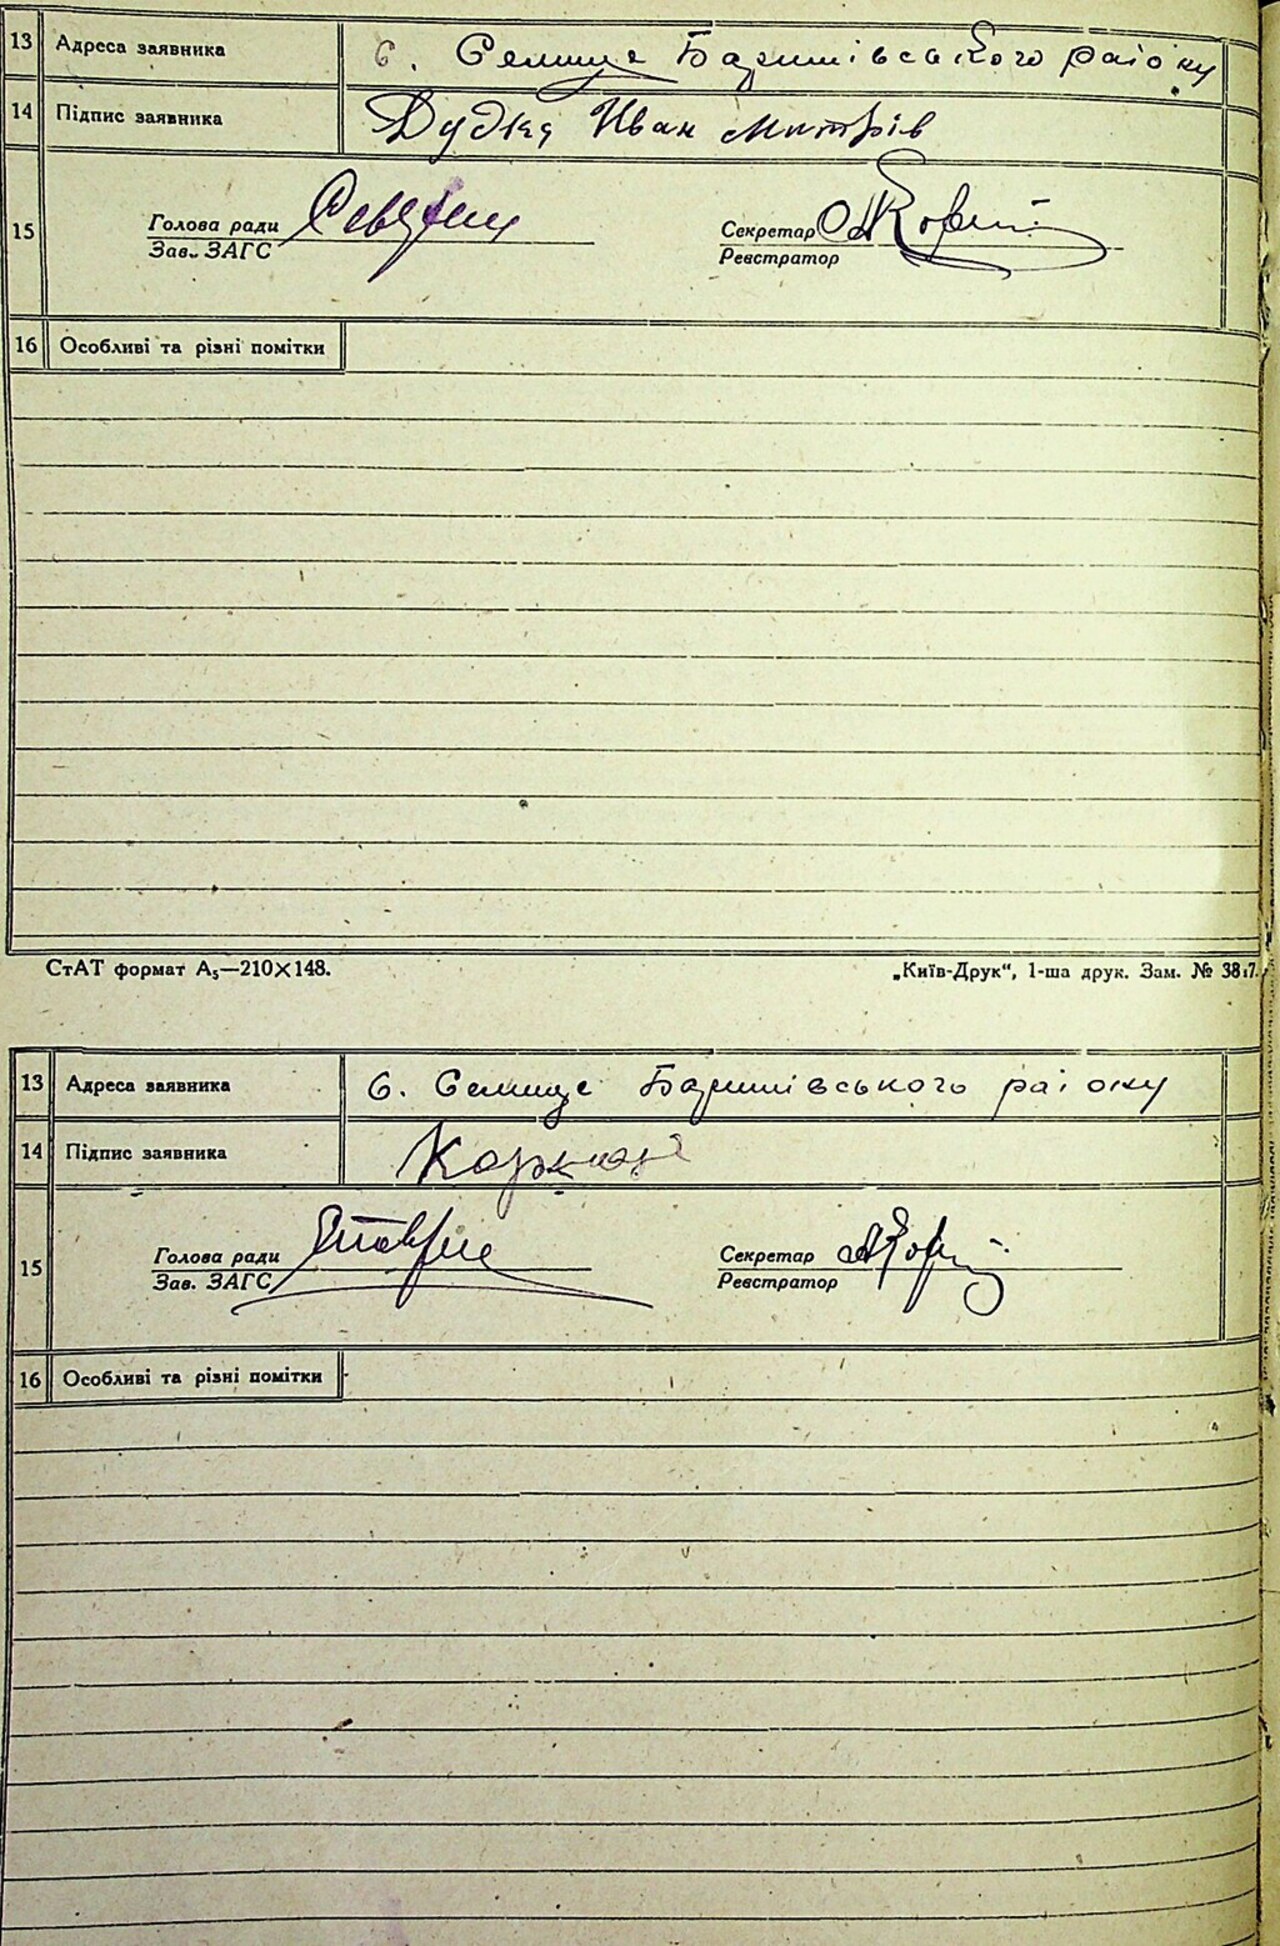 13 Адреса заявника с. Селище Баришівського району
14 Підпис заявника Дудка Иван Митрів
15 Голова ради Секретар
Зав. ЗАГС Реєстратор
16 Особливі та різні помітки
СтАТ формат А₅—210×148. „Київ-Друк“, 1-ша друк. Зам. №
13 Адреса заявника с. Селище Баришівського району
14 Підпис заявника
15 Голова ради Секретар
Зав. ЗАГС Реєстратор
16 Особливі та різні помітки